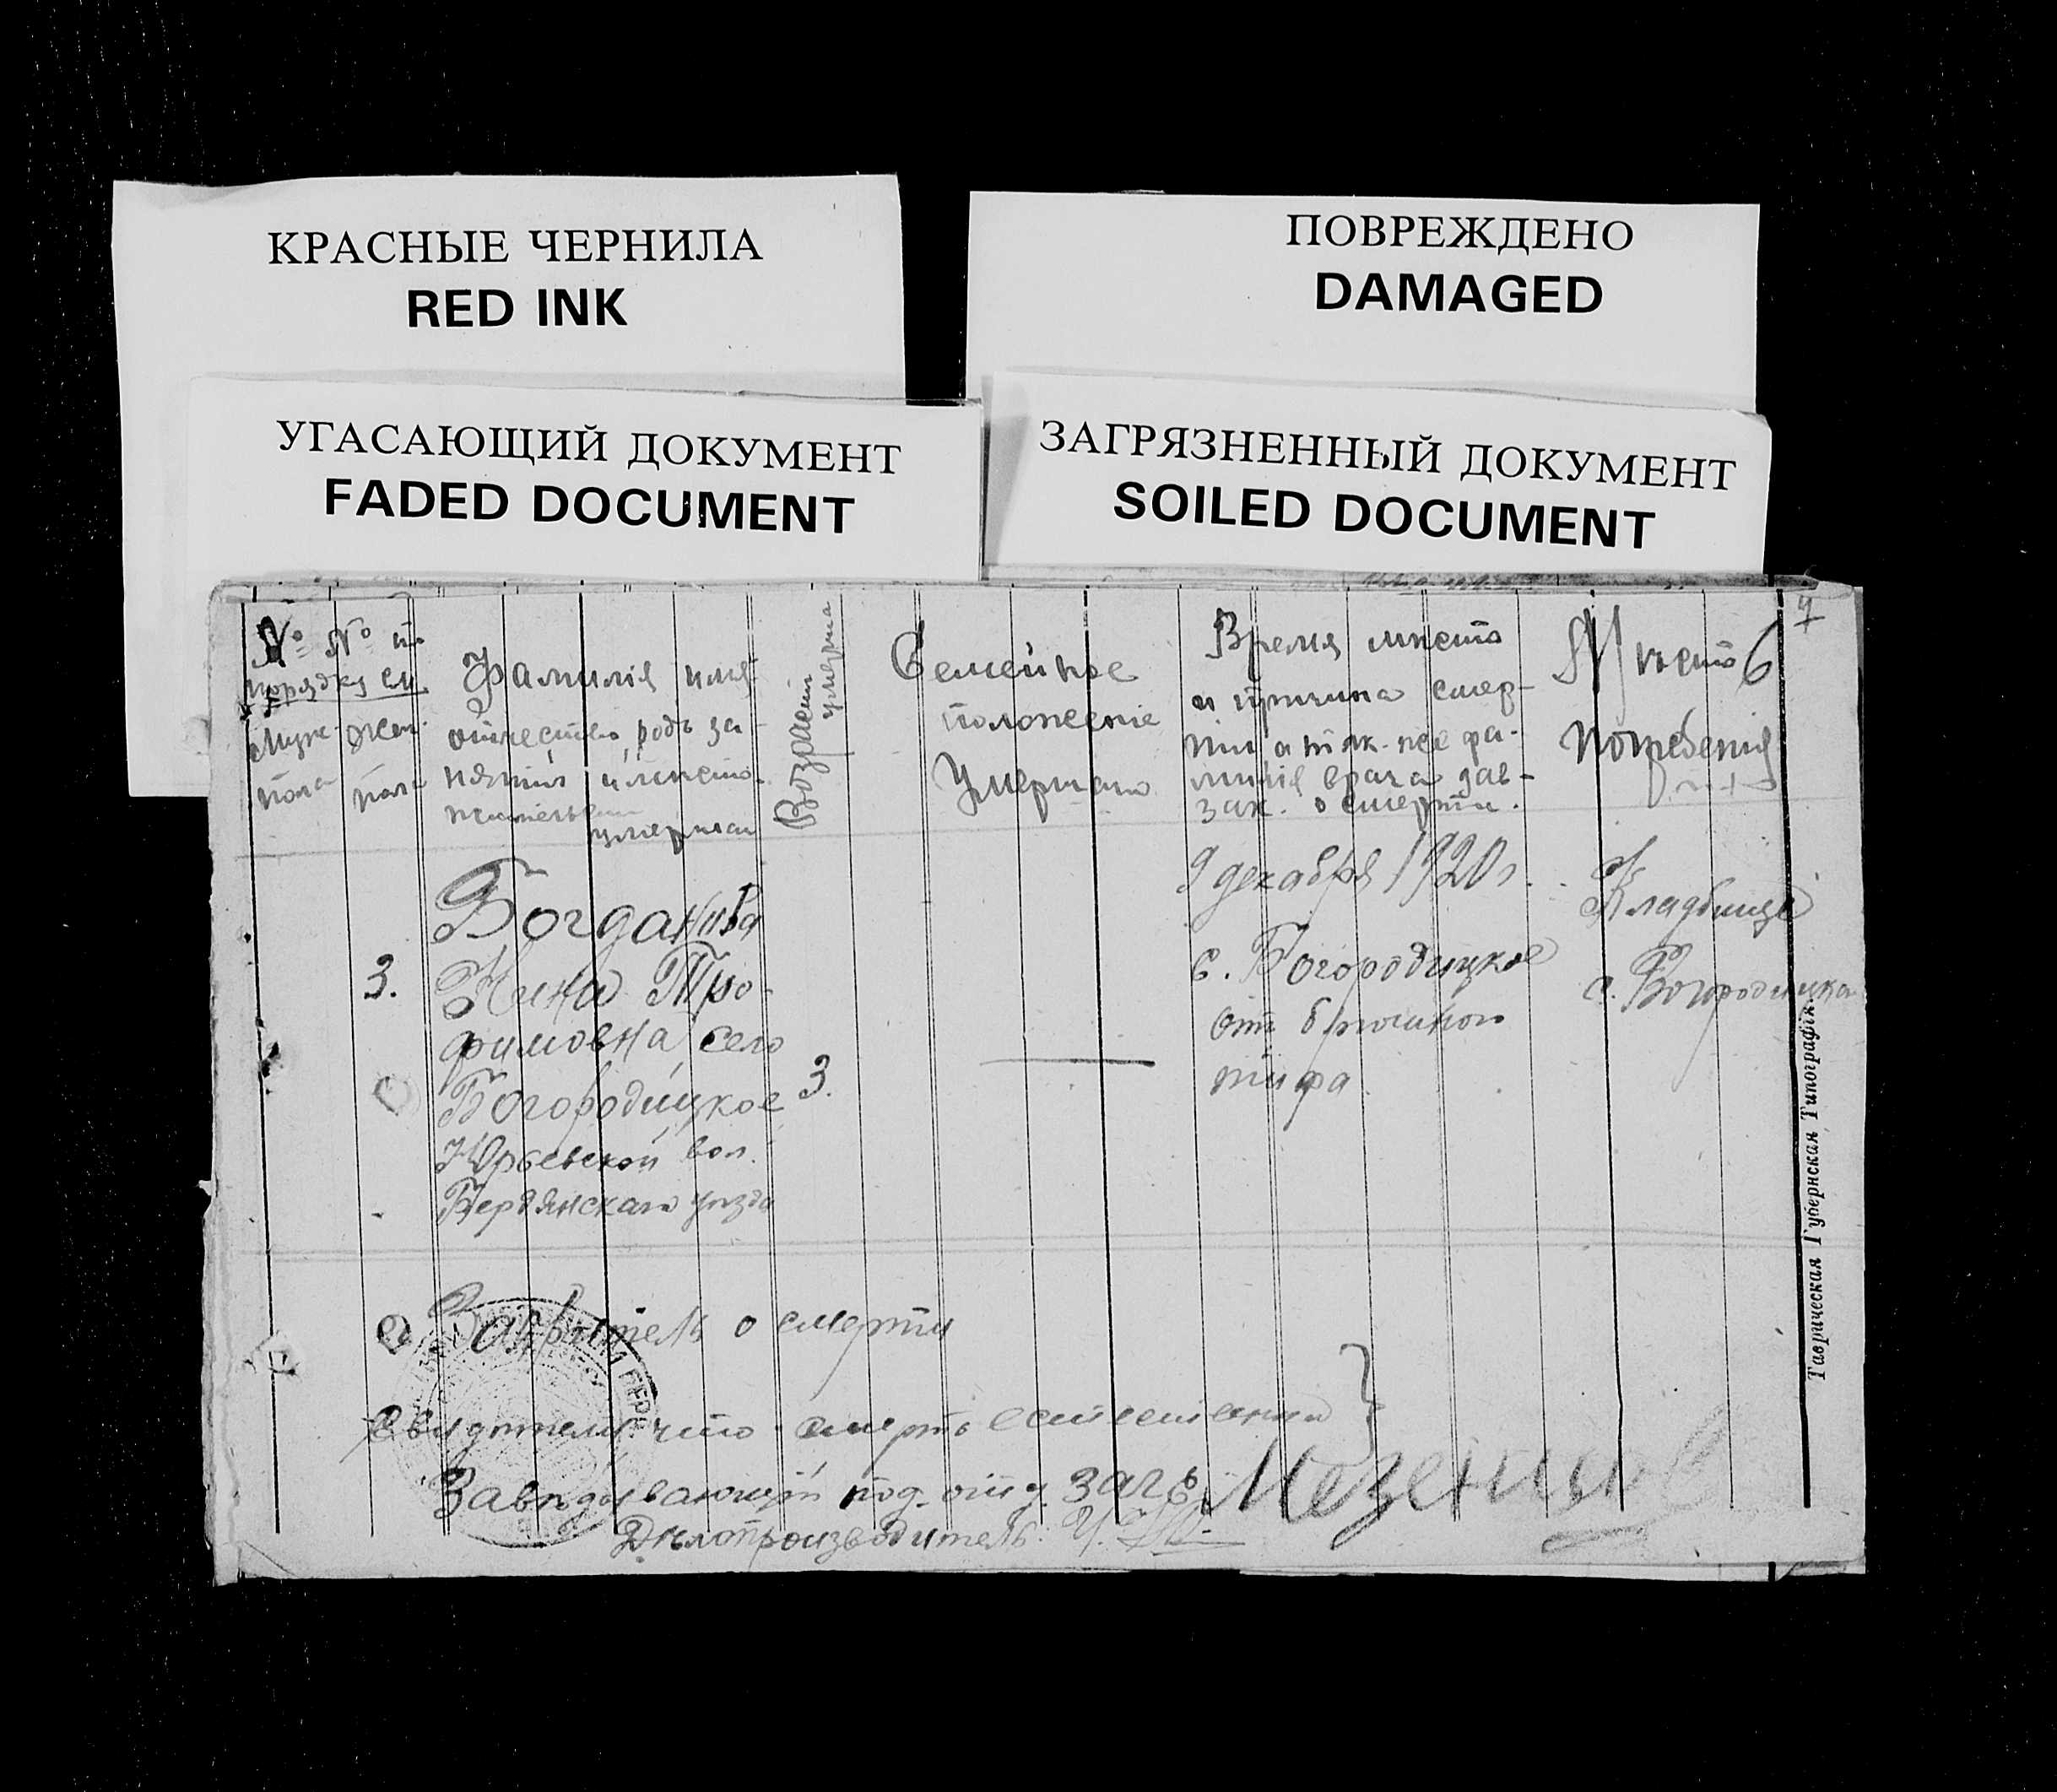 КРАСНЫЕ ЧЕРНИЛА
RED INK
ПОВРЕЖДЕНО
DAMAGED
УГАСАЮЩИЙ ДОКУМЕНТ
FADED DOCUMENT
ЗАГРЯЗНЕННЫЙ ДОКУМЕНТ
SOILED DOCUMENT
№ № по
порядку см.
Муж. жен.
пола пола
Фамилія имя
отчество, родъ за-
нятій и место-
жительство
умершаго
Возрастъ
умерша
Семейное
положеніе
Умершаго
Время место
и причина смер-
ти а так-же фа-
милія врача дав-
зак. о смерти.
Место
погребенія
6
3.
Богданова
Нина Тро-
фимовна село
Богородицкое
Юрьевской вол.
Бердянскаго уезда
3.
9 декабря 1920 г.
с. Богородицкое
от брюшного
тифа
Кладбище
с. Богородицка
Заявитель о смерти
Свидетели что смерть естественна
Заведывающій под. отд. загс Мезенцов
Делопроизводитель:
Таврическая Губернская Типографія.